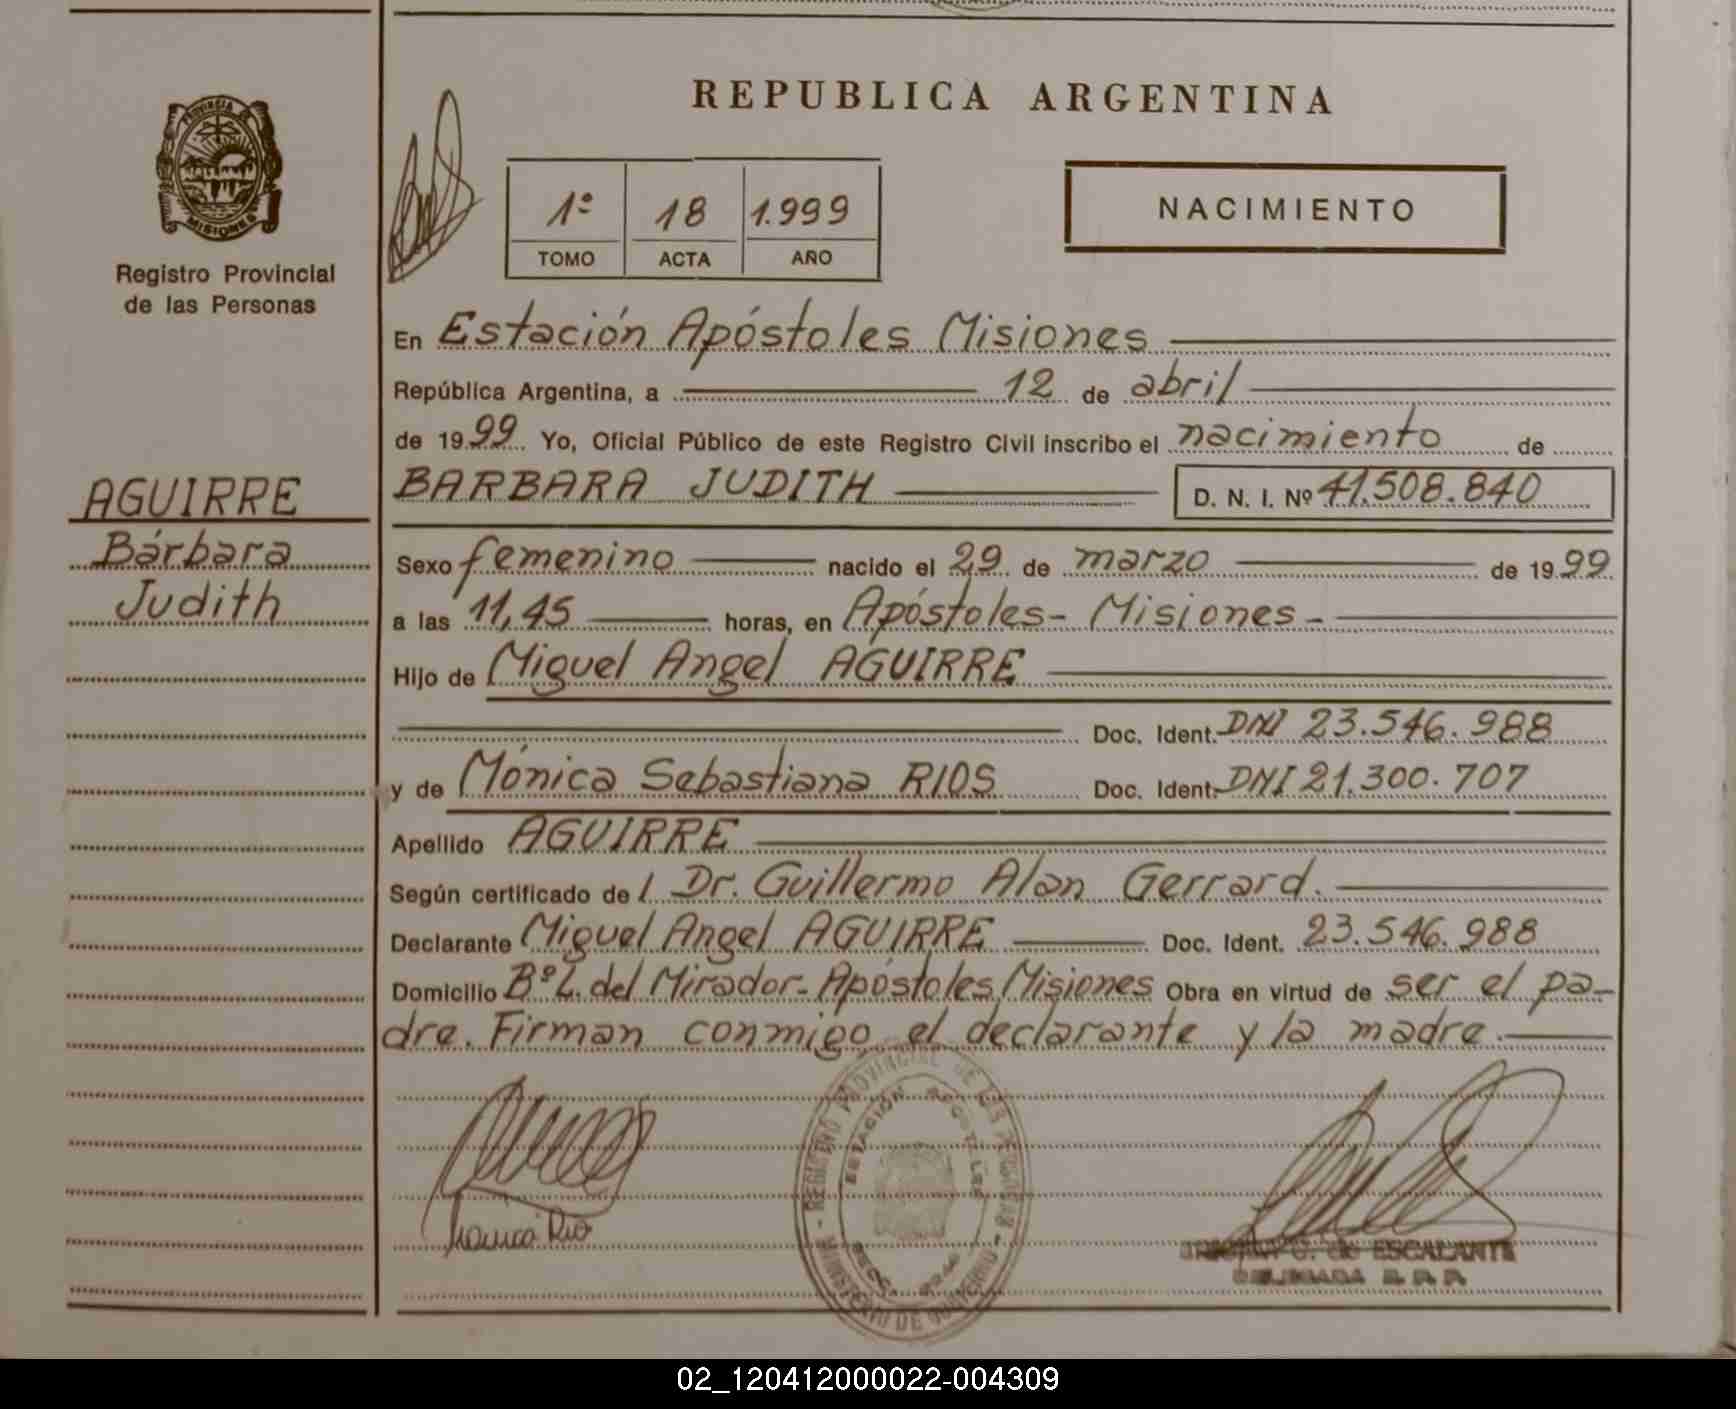 PROVINCIA DE
MISIONES
Registro Provincial
de las Personas
AGUIRRE
Bárbara
Judith
REPUBLICA ARGENTINA
1º 18 1.999
TOMO ACTA AÑO
NACIMIENTO
En Estación Apóstoles Misiones
República Argentina, a 12 de abril
de 1999 Yo, Oficial Público de este Registro Civil inscribo el nacimiento de
BARBARA JUDITH D. N. I. Nº 41.508.840
Sexo femenino nacido el 29 de marzo de 1999
a las 11,45 horas, en Apóstoles- Misiones-
Hijo de Miguel Angel AGUIRRE
Doc. Ident. DNI 23.546.988
y de Mónica Sebastiana RIOS Doc. Ident. DNI 21.300.707
Apellido AGUIRRE
Según certificado de l Dr. Guillermo Alan Gerrard.
Declarante Miguel Angel AGUIRRE Doc. Ident. 23.546.988
Domicilio Bº L. del Mirador- Apóstoles Misiones Obra en virtud de ser el pa-
dre. Firman conmigo el declarante y la madre.
REGISTRO PROVINCIAL DE LAS PERSONAS
ESTACIÓN APOSTOLES
MINISTERIO DE GOBIERNO
de ESCALANTE
DELEGADA R. P. P.
02_120412000022-004309